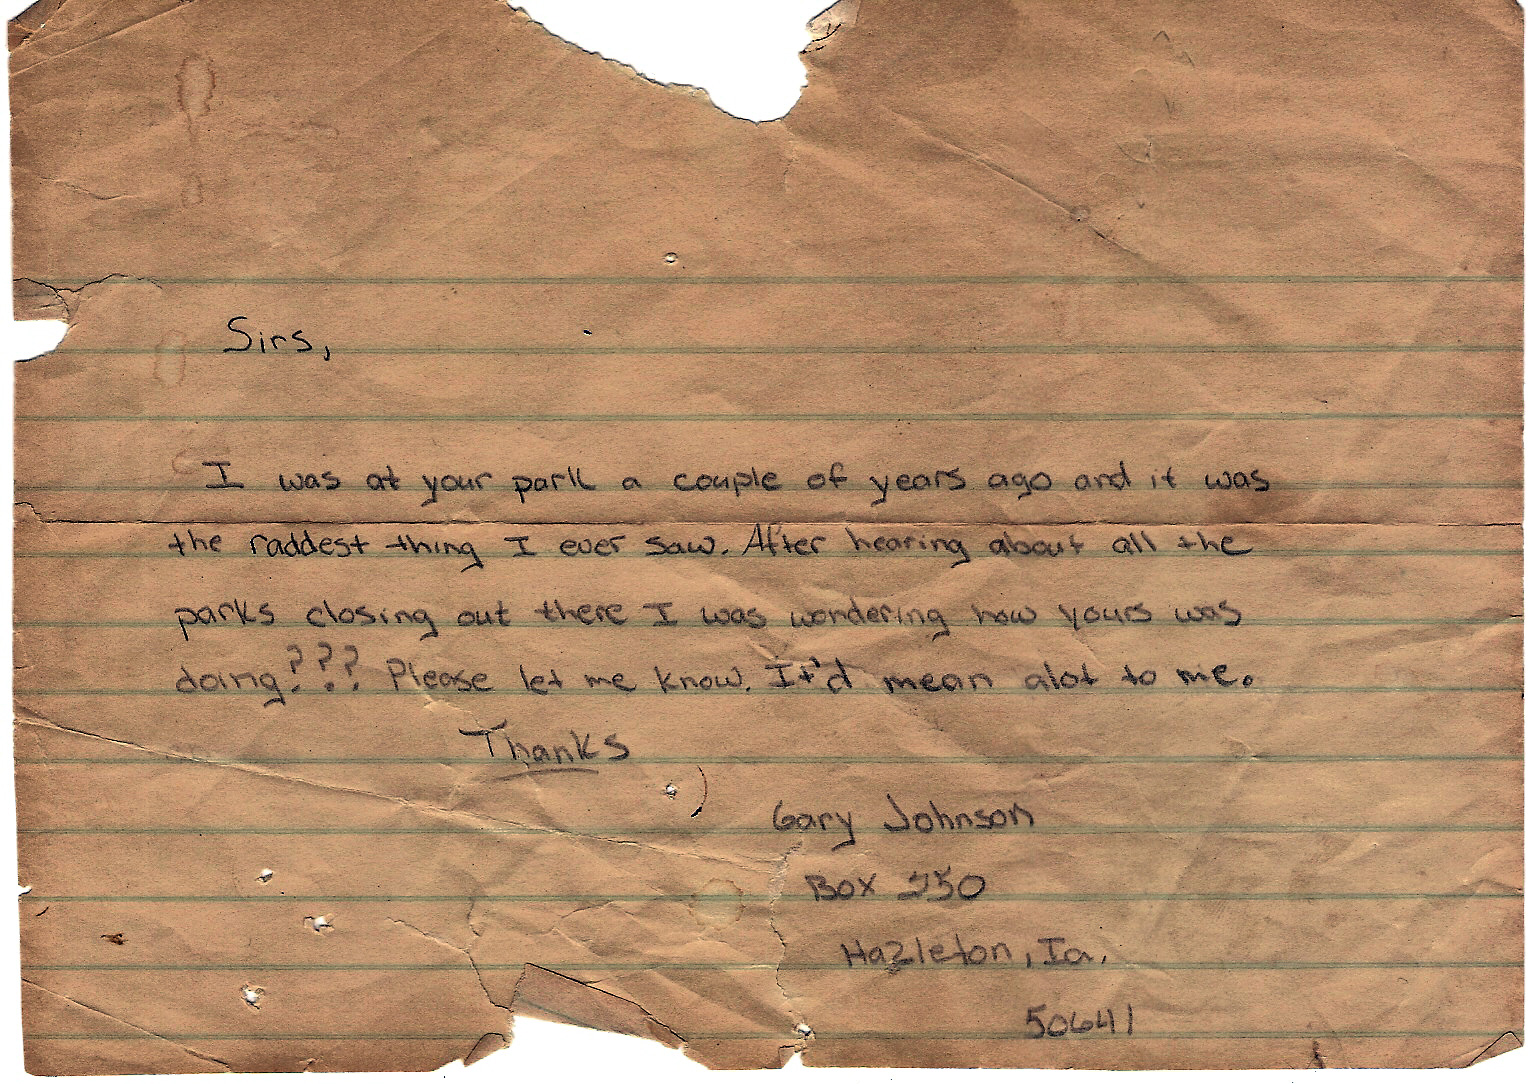 Sirs,
I was at your park a couple of years ago and it was
the raddest thing I ever saw. After hearing about all the
parks closing out there I was wondering how yours was
doing??? Please let me know. It'd mean alot to me.
Thanks
Gary Johnson
Box
Hazleton, Ia.
50641